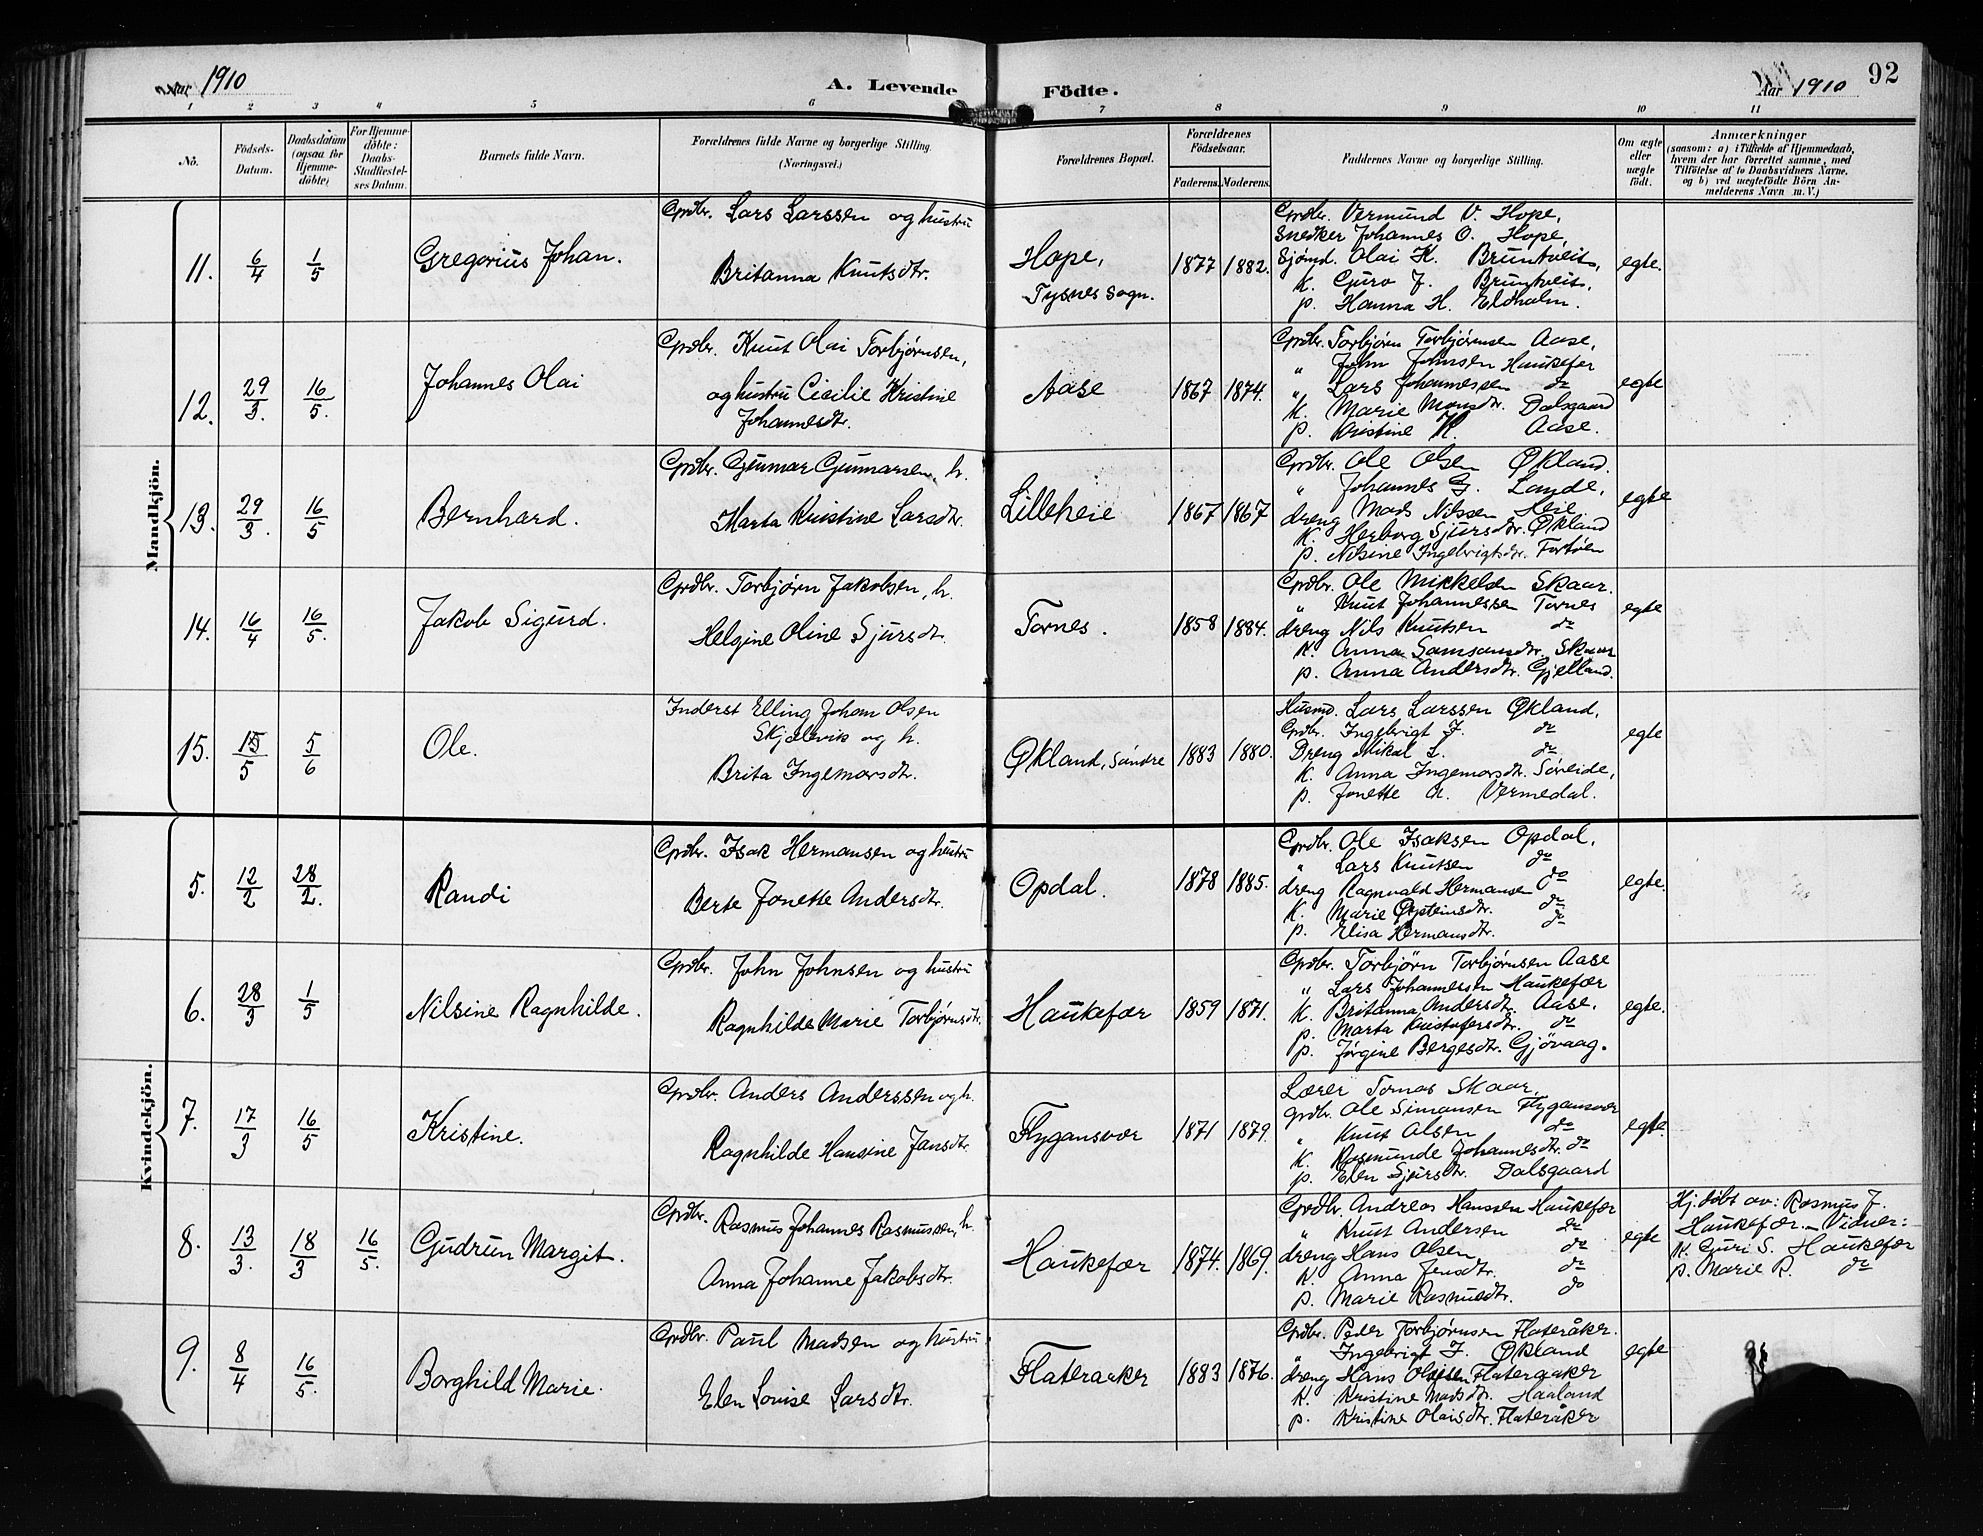 Aar 1910
A. Levende Födte.
Aar 1910
92
1 2 3 4 5 6 7 8 9 10 11
No.
Födsels-Datum.
Daabsdatum (ogsaa for Hjemme-döbte)
For Hjemme-döbte: Daabs-Stadfæstel-ses Datum.
Barnets fulde Navn.
Forældrenes fulde Navne og borgerlige Stilling. (Næringsvei.)
Forældrenes Bopæl.
Forældrenes Födselsaar.
Faderens. Moderens.
Faddernes Navne og borgerlige Stilling.
Om ægte eller uægte födt.
Anmærkninger
(saasom: a) i Tilfælde af Hjemmedaab, hvem der har forrettet samme, med Tilföielse af to Daabsvidners Navne, og b) ved uægtefödte Börn An-melderens Navn m. V.)
Mandkjön.
11. 6/4 1/5 Gregorius Johan.
Grdbr. Lars Larssen og hustru
Britanna Knutsdtr.
Hope,
Tysnes sogn.
1877 1882.
Grdbr. Vermund V. Hope,
Snedker Johannes O. Hope,
Sjømd. Olai K. Bruntveit,
K. Guro J. Bruntveit,
p. Hanna H. Eldholm.
egte.
12. 29/3. 16/5. Johannes Olai
Grdbr. Knut Olai Torbjørnsen,
og hustru Cicilie Kristine
Johannesdtr.
Aase
1867 1874.
Grdbr. Torbjørn Torbjørnsen Aase,
„ John Johnsen Haukefær
„ Lars Johannessen do
K. Marie Monsdtr. Dalsgaard
p. Kristine K. Aase.
egte
13. 29/3. 16/5 Bernhard.
Grdbr. Gunnar Gunnarsen, h.
Marta Kristine Larsdtr.
Lilleheie
1867 1867
Grdbr. Ole Olsen Økland.
„ Johannes G. Lande,
dreng Mads Nilssen Heie
K. Herborg Sjursdtr. Økland
p. Nilsine Ingebrigtsdtr. Fortøen
egte
14. 16/4 16/5. Jakob Sigurd.
Grdbr. Torbjørn Jakobsen, h.
Helgine Oline Sjursdtr.
Tornes.
1858 1884.
Grdbr. Ole Mikkelsen Skaar.
„ Knut Johannessen Tornes
dreng Nils Knutsen do
K. Anna Samsonsdtr. Skaar
p. Anna Andersdtr. Gjelland.
egte
15. 15/5 5/6 Ole.
Inderst Elling Johan Olsen
Skjelevik og h.
Brita Ingemarsdtr.
Økland, Søndre
1883 1880.
Husmd. Lars Larssen Økland,
Grdbr. Ingebrigt J. do
Dreng Mikal L. do
K. Anna Ingemarsdtr. Søreide,
p. Jonette A. Vermedal.
egte
Kvindekjön.
5. 12/2 28/2. Randi
Grdbr. Isak Hermansen og hustru
Berte Jonette Andersdtr.
Opdal.
1878 1885.
Grdbr. Ole Isaksen Opdal,
„ Lars Knutsen do
dreng Ragnvald Hermansen do
K. Marie Øysteinsdtr. do
p. Elisa Hermansdtr. do
egte.
6. 28/3 1/5 Nilsine Ragnhilde.
Grdbr. John Johnsen og hustru
Ragnhilde Marie Torbjørnsdtr.
Haukefær
1859 1871.
Grdbr. Torbjørn Torbjørnsen Aase
„ Lars Johannessen Haukefær
K. Britanna Andersdtr. Aase.
p. Marta Kristofersdtr. do
p. Jørgine Bergesdtr. Gjøvaag.
egte.
7. 17/3 16/5 Kristine.
Grdbr. Anders Anderssen og h.
Ragnhilde Hansine Jansdtr.
Flygansvær
1871 1879.
Lærer Tomas Skaar
grdbr. Ole Simonsen Flygansvær
„ Knut Olsen do
K. Rasmunde Johannesdtr. do
p. Elen Sjursdtr. Dalsgaard
egte.
8. 13/3. 18/3 16/5. Gudrun Margit.
Grdbr. Rasmus Johannes Rasmussen, h.
Anna Johanne Jakobsdtr.
Haukefær
1874. 1869.
Grdbr. Andreas Hanssen Haukefær
„ Knut Andersen do
dreng Hans Olsen do
K. Anna Jensdtr. do
p. Marie Rasmusdtr. do
egte
Hj. døbt av: Rasmus J.
Haukefær. – Vidner:
K. Guri S. Haukefær
p. Marie R. do
9. 8/4 16/5. Borghild Marie.
Grdbr. Paul Madsen og hustru
Elen Lovise Larsdtr.
Flateraaker
1883 1876.
Grdbr. Peder Torbjørnsen Flateråker.
„ Ingebrigt J. Økland
dreng Hans Olsen Flateraaker
K. Kristine Madsdtr. Haaland
p. Kristine Olaisdtr. Flateråker
egte